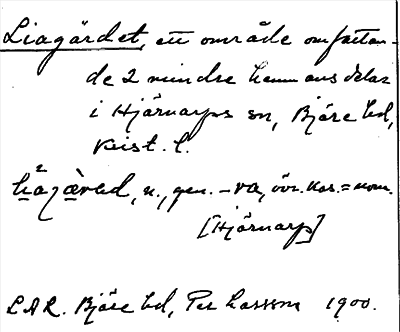 Liagärdet, ett område omfattan-
de 2 mindre hemmansdelar
i Hjärnarps sn, Bjäre hd,
Krist. l.
n., gen. -va, övr. kas. = nom.
[Hjärnarp]
LAL. Bjäre hd, Per Larsson 1900.